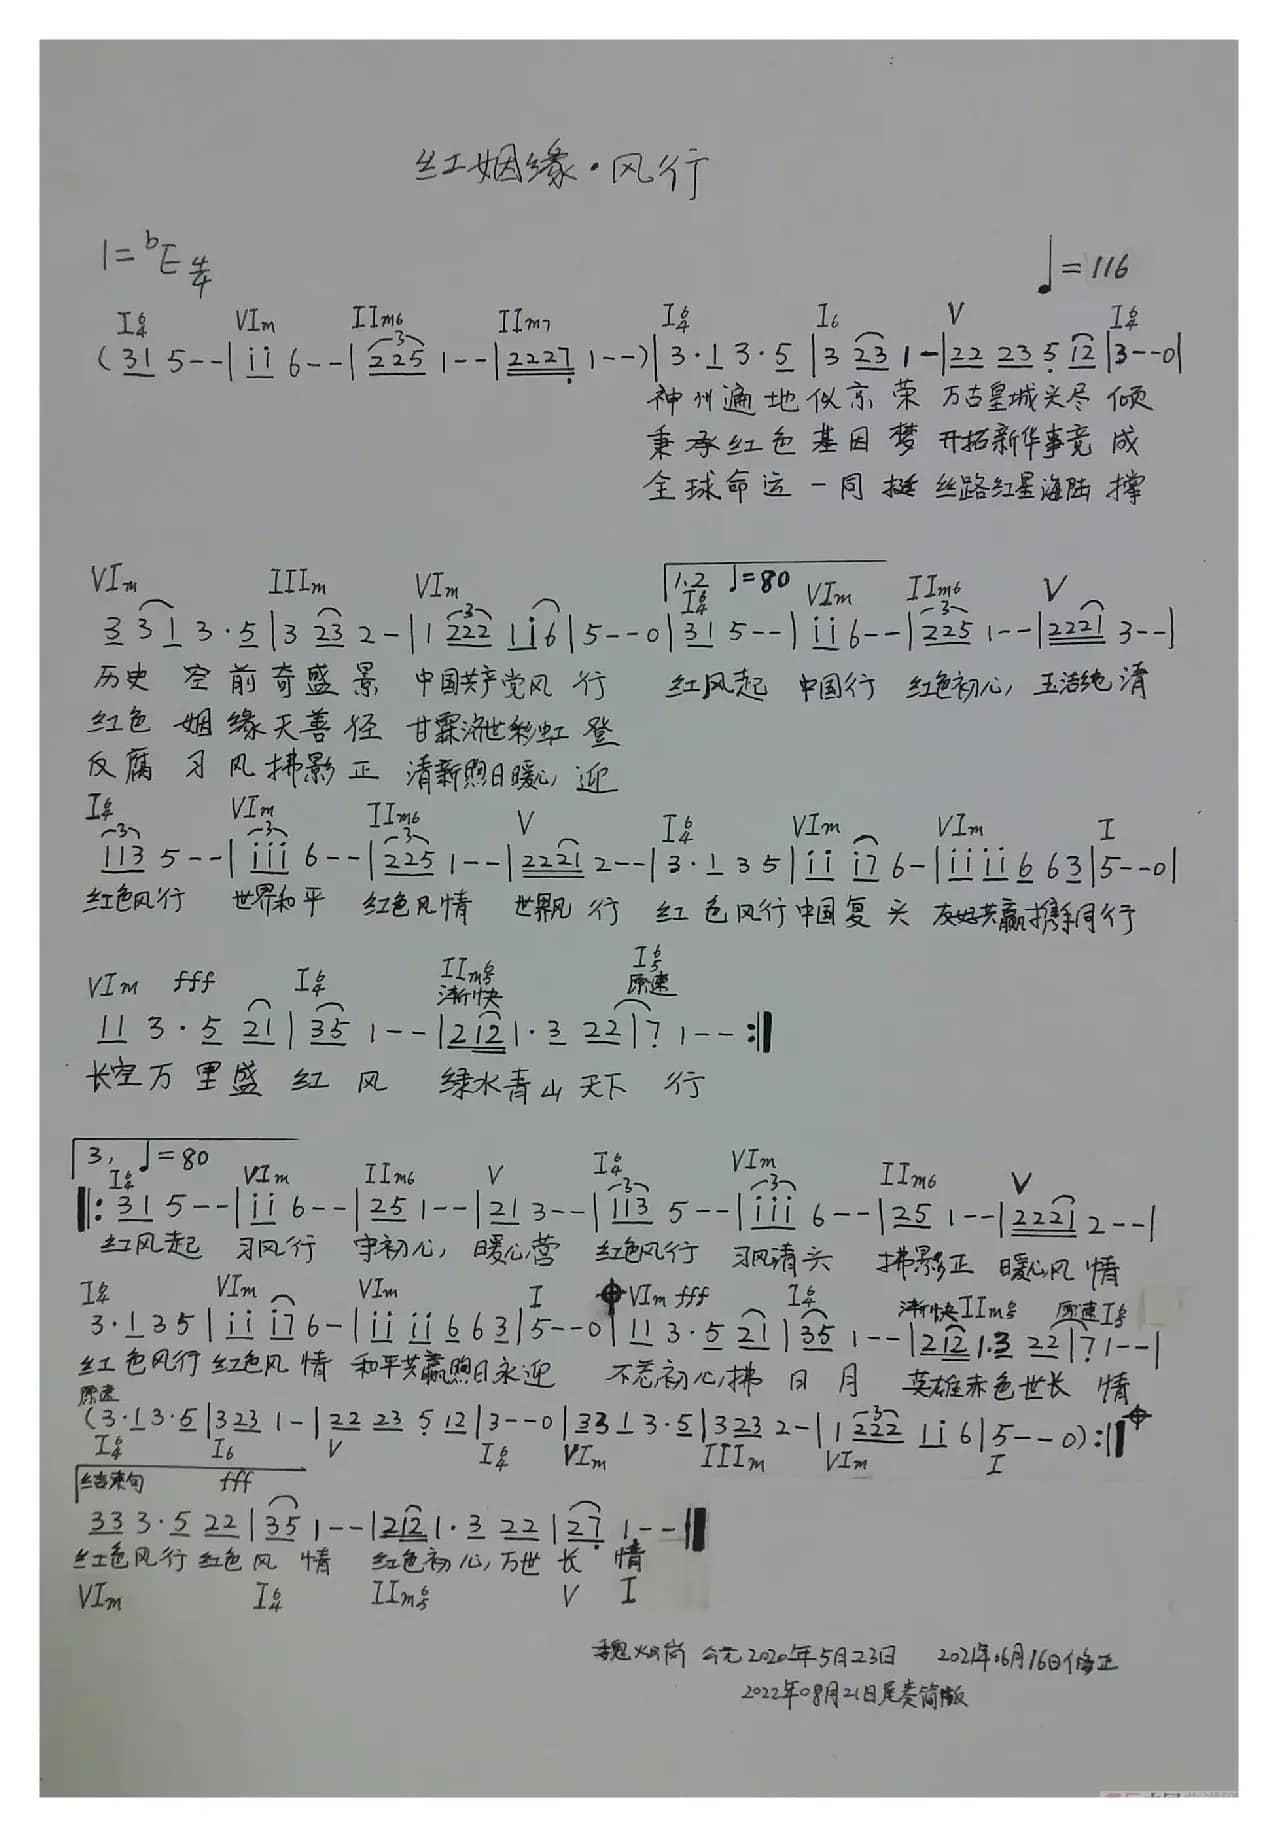 红姻缘·风行
1=bE 4/4 ♩=116
I6/4 VIm IIm6 IIm7 I6/4 I6 V I6/4
(31 5--|ii 6--|225 1--|2227 1--)|3·1 3·5|3 23 1-|22 23 5 12|3--0|
神州遍地似京荣 万古皇城头尽倾
秉承红色基因梦 开拓新华事竞成
全球命运一同挺 丝路红星海陆撑
VIm IIIm VIm 1.2 ♩=80 I6/4 VIm IIm6 V
3 31 3·5|3 23 2-|1 222 1i6|5--0|31 5--|ii 6--|225 1--|2221 3--|
历史空前奇盛景 中国共产党风行 红风起 中国行 红色初心,玉洁纯清
红色姻缘天善径 甘霖济世彩虹登
反腐习风拂影正 清新煦日暖心迎
I6/4 VIm IIm6 V I6/4 VIm VIm I
113 5--|iii 6--|225 1--|2221 2--|3·1 35|ii i7 6-|ii ii 6 63|5--0|
红色风行 世界和平 红色风情 世界风行 红色风行中国复头 友好共赢携手同行
VIm fff I6/4 IIm6/5 渐快 I6/5 原速
11 3·5 21|35 1--|212 1·3 22|7 1--:‖
长空万里盛红风 绿水青山天下行
3, ♩=80
I6/4 VIm IIm6 V I6/4 VIm IIm6 V
‖:31 5--|ii 6--|25 1--|21 3--|113 5--|iii 6--|25 1--|2221 2--|
红风起 习风行 守初心,暖心营 红色风行 习风清头 拂影正 暖心风情
I6/4 VIm VIm I VIm fff I6/4 渐快IIm6/5 原速I6/5
3·1 35|ii i7 6-|ii ii 6 63|5--0|11 3·5 21|35 1--|212 1·3 22|7 1--|
红色风行红色风情 和平共赢煦日永迎 不忘初心拂日月 英雄赤色世长情
原速
(3·1 3·5|323 1-|22 23 5 12|3--0|33 1 3·5|323 2-|1 222 1i6|5--0):‖
I6/4 I6 V I6/4 VIm IIIm VIm I
结束句 fff
33 3·5 22|35 1--|212 1·3 22|27 1--‖
红色风行红色风情 红色初心,万世长情
VIm I6/4 IIm6/5 V I
公元2020年5月23日 2021年06月16日修正
2022年08月21日尾奏简版